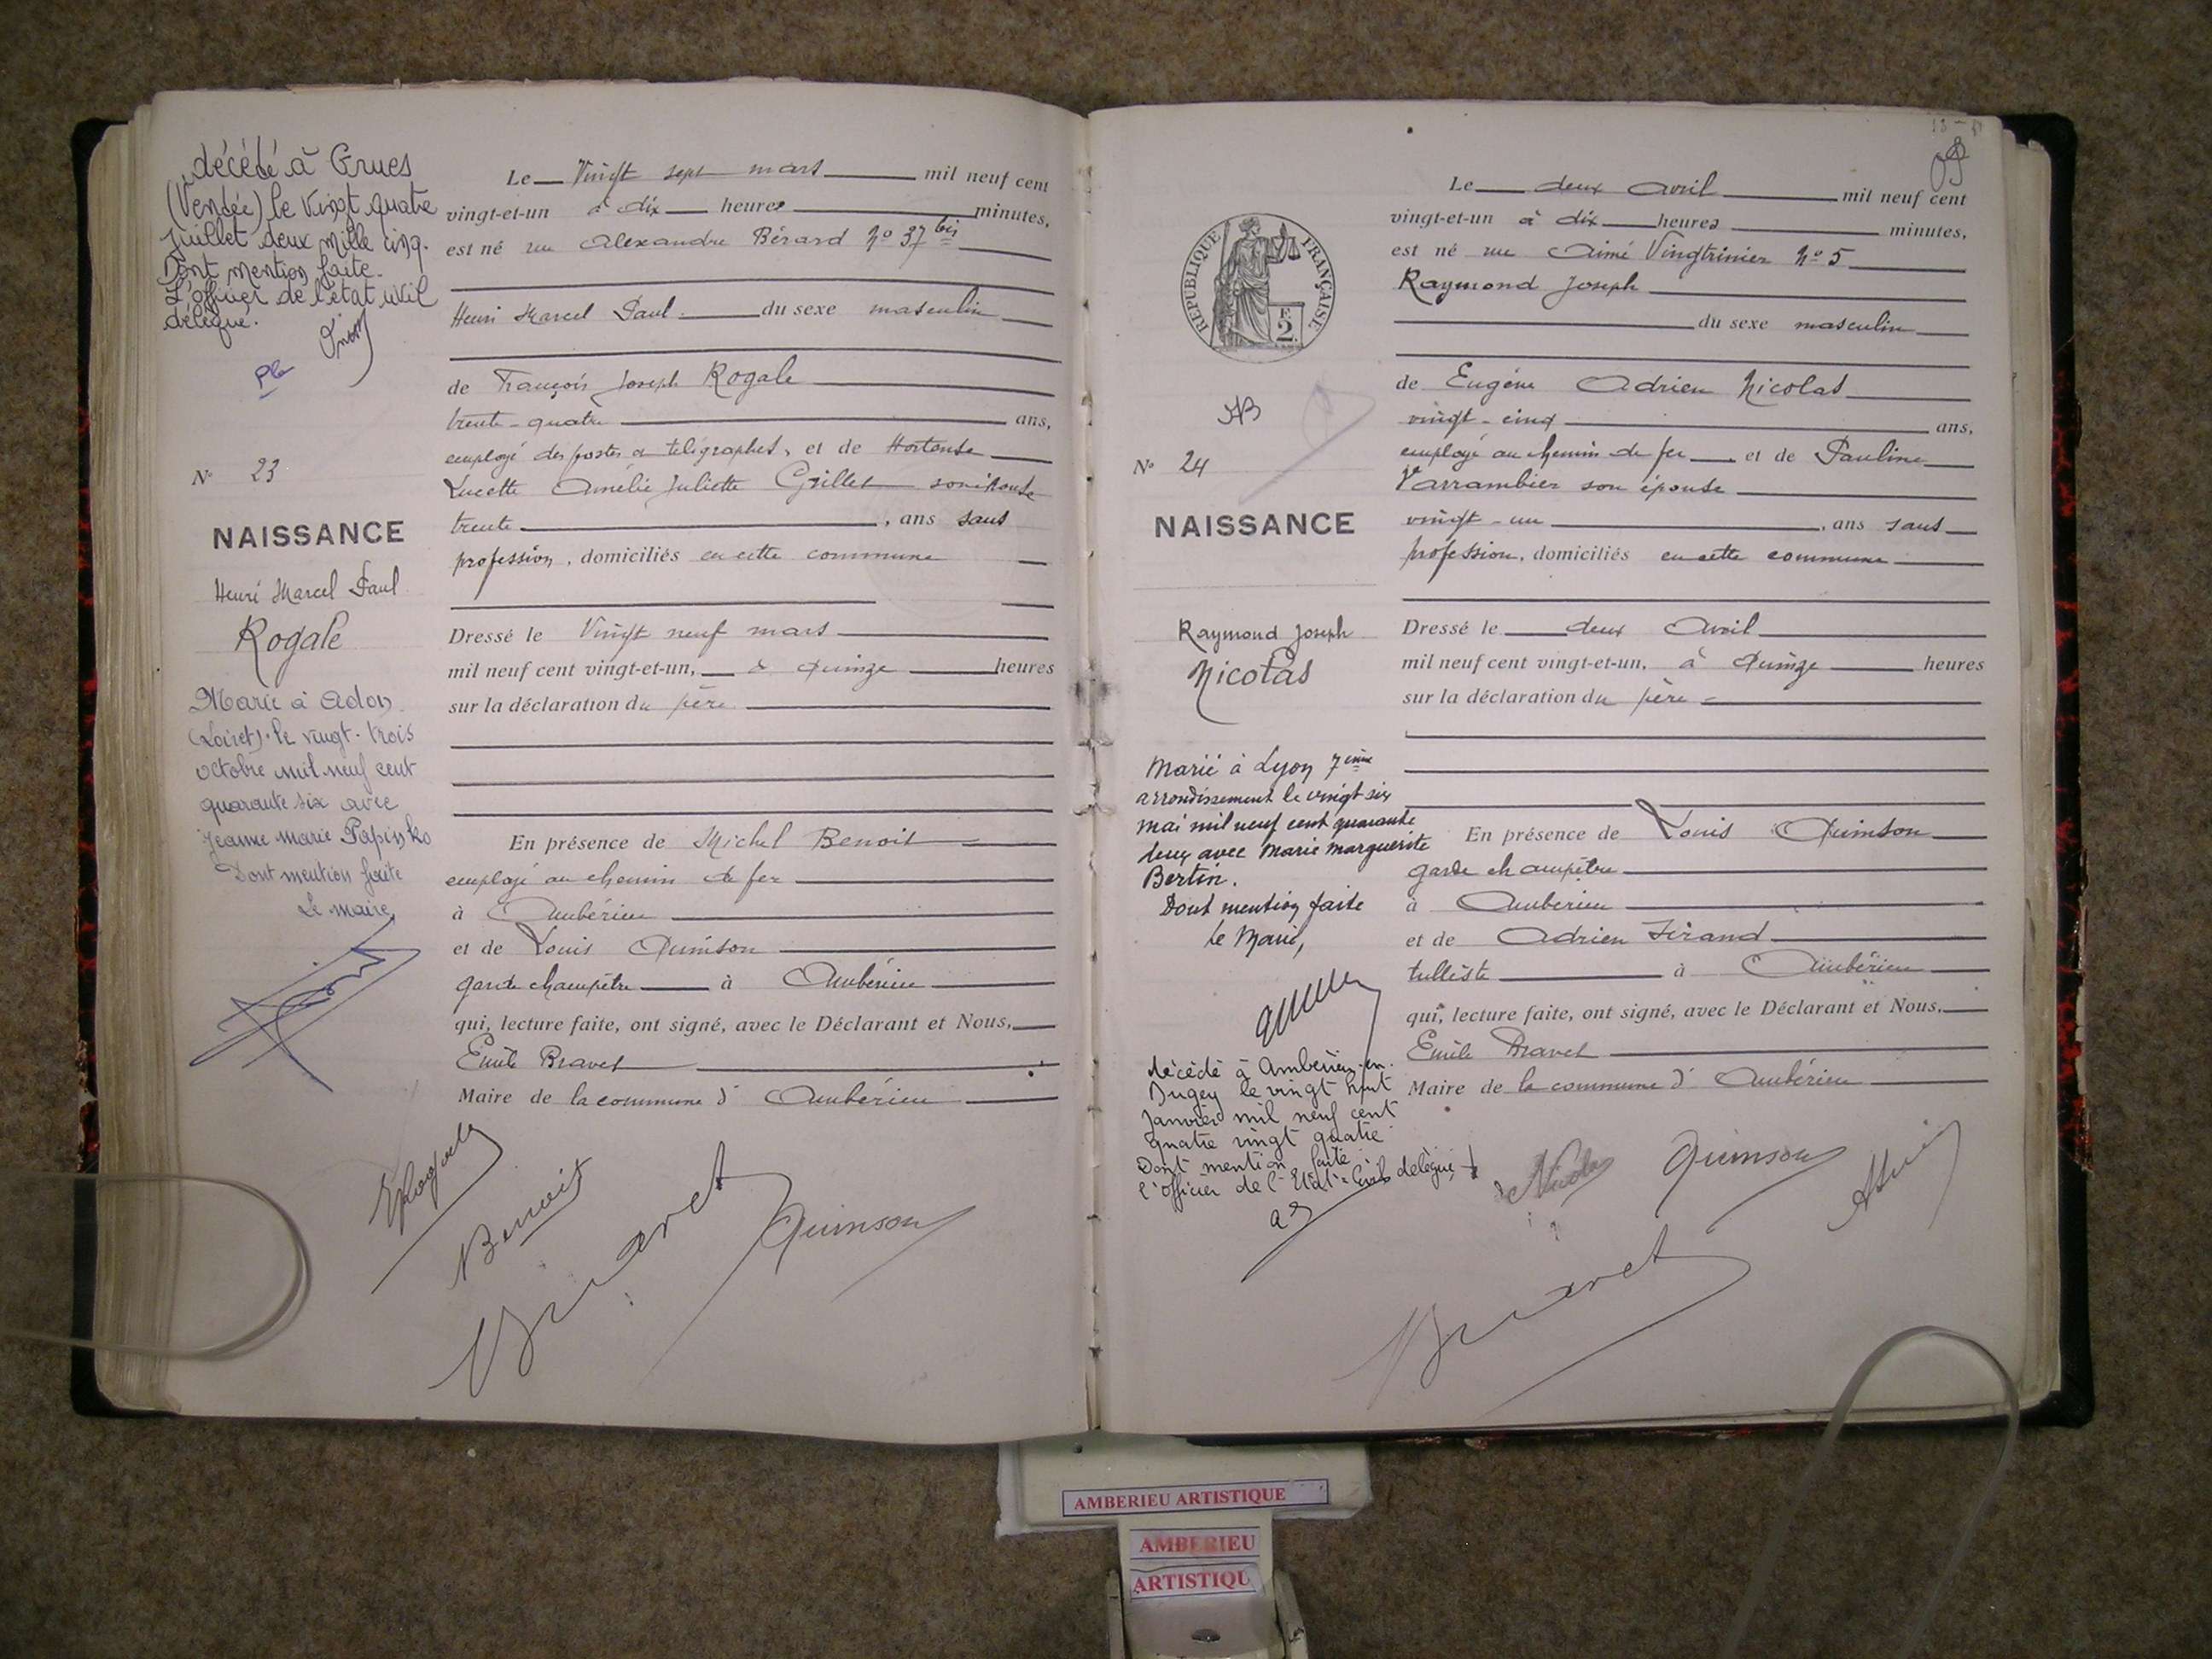 décédé à Grues
(Vendée) le vingt quatre
juillet deux mille cinq.
Dont mention faite.
L'officier de l'état civil
délégué.
N° 23
NAISSANCE
Henri Marcel Paul
Rogale
Marié à Adon
(Loiret) le vingt-trois
octobre mil neuf cent
quarante six avec
Jeanne Marie Papinko
Dont mention faite
Le maire
Le Vingt sept mars mil neuf cent
vingt-et-un à dix heures minutes,
est né rue Alexandre Bérard N° 37 bis
Henri Marcel Paul du sexe masculin
de François Joseph Rogale
trente-quatre ans,
employé des postes et télégraphes, et de Hortense
Lucette Amélie Juliette Grillet son épouse
trente , ans sans
profession, domiciliés en cette commune
Dressé le Vingt neuf mars
mil neuf cent vingt-et-un, à quinze heures
sur la déclaration du père
En présence de Michel Benoit
employé au chemin de fer
à Ambérieu
et de Louis Quinson
garde champêtre à Ambérieu
qui, lecture faite, ont signé, avec le Déclarant et Nous,
Emile Bravet
Maire de la commune d' Ambérieu
Rogale
Benoit
Bravet
Quinson
RÉPUBLIQUE FRANÇAISE
F. 2
N° 24
NAISSANCE
Raymond Joseph
Nicolas
Marié à Lyon 7ème
arrondissement le vingt six
mai mil neuf cent quarante
deux avec Marie Marguerite
Bertin.
Dont mention faite
le Maire,
décédé à Ambérieu-en-
Bugey le vingt huit
Janvier mil neuf cent
quatre vingt quatre
Dont mention faite
l'officier de l'Etat-Civil délégué
Le deux Avril mil neuf cent
vingt-et-un à dix heures minutes,
est né rue Aimé Vingtrinier N° 5
Raymond Joseph
du sexe masculin
de Eugène Adrien Nicolas
vingt-cinq ans,
employé au chemin de fer et de Pauline
Varrambier son épouse
vingt-un , ans sans
profession, domiciliés en cette commune
Dressé le deux Avril
mil neuf cent vingt-et-un, à quinze heures
sur la déclaration du père
En présence de Louis Quinson
garde champêtre
à Ambérieu
et de Adrien
tulliste à Ambérieu
qui, lecture faite, ont signé, avec le Déclarant et Nous,
Emile Bravet
Maire de la commune d' Ambérieu
Nicolas
Quinson
Bravet
AMBERIEU ARTISTIQUE
AMBERIEU
ARTISTIQU